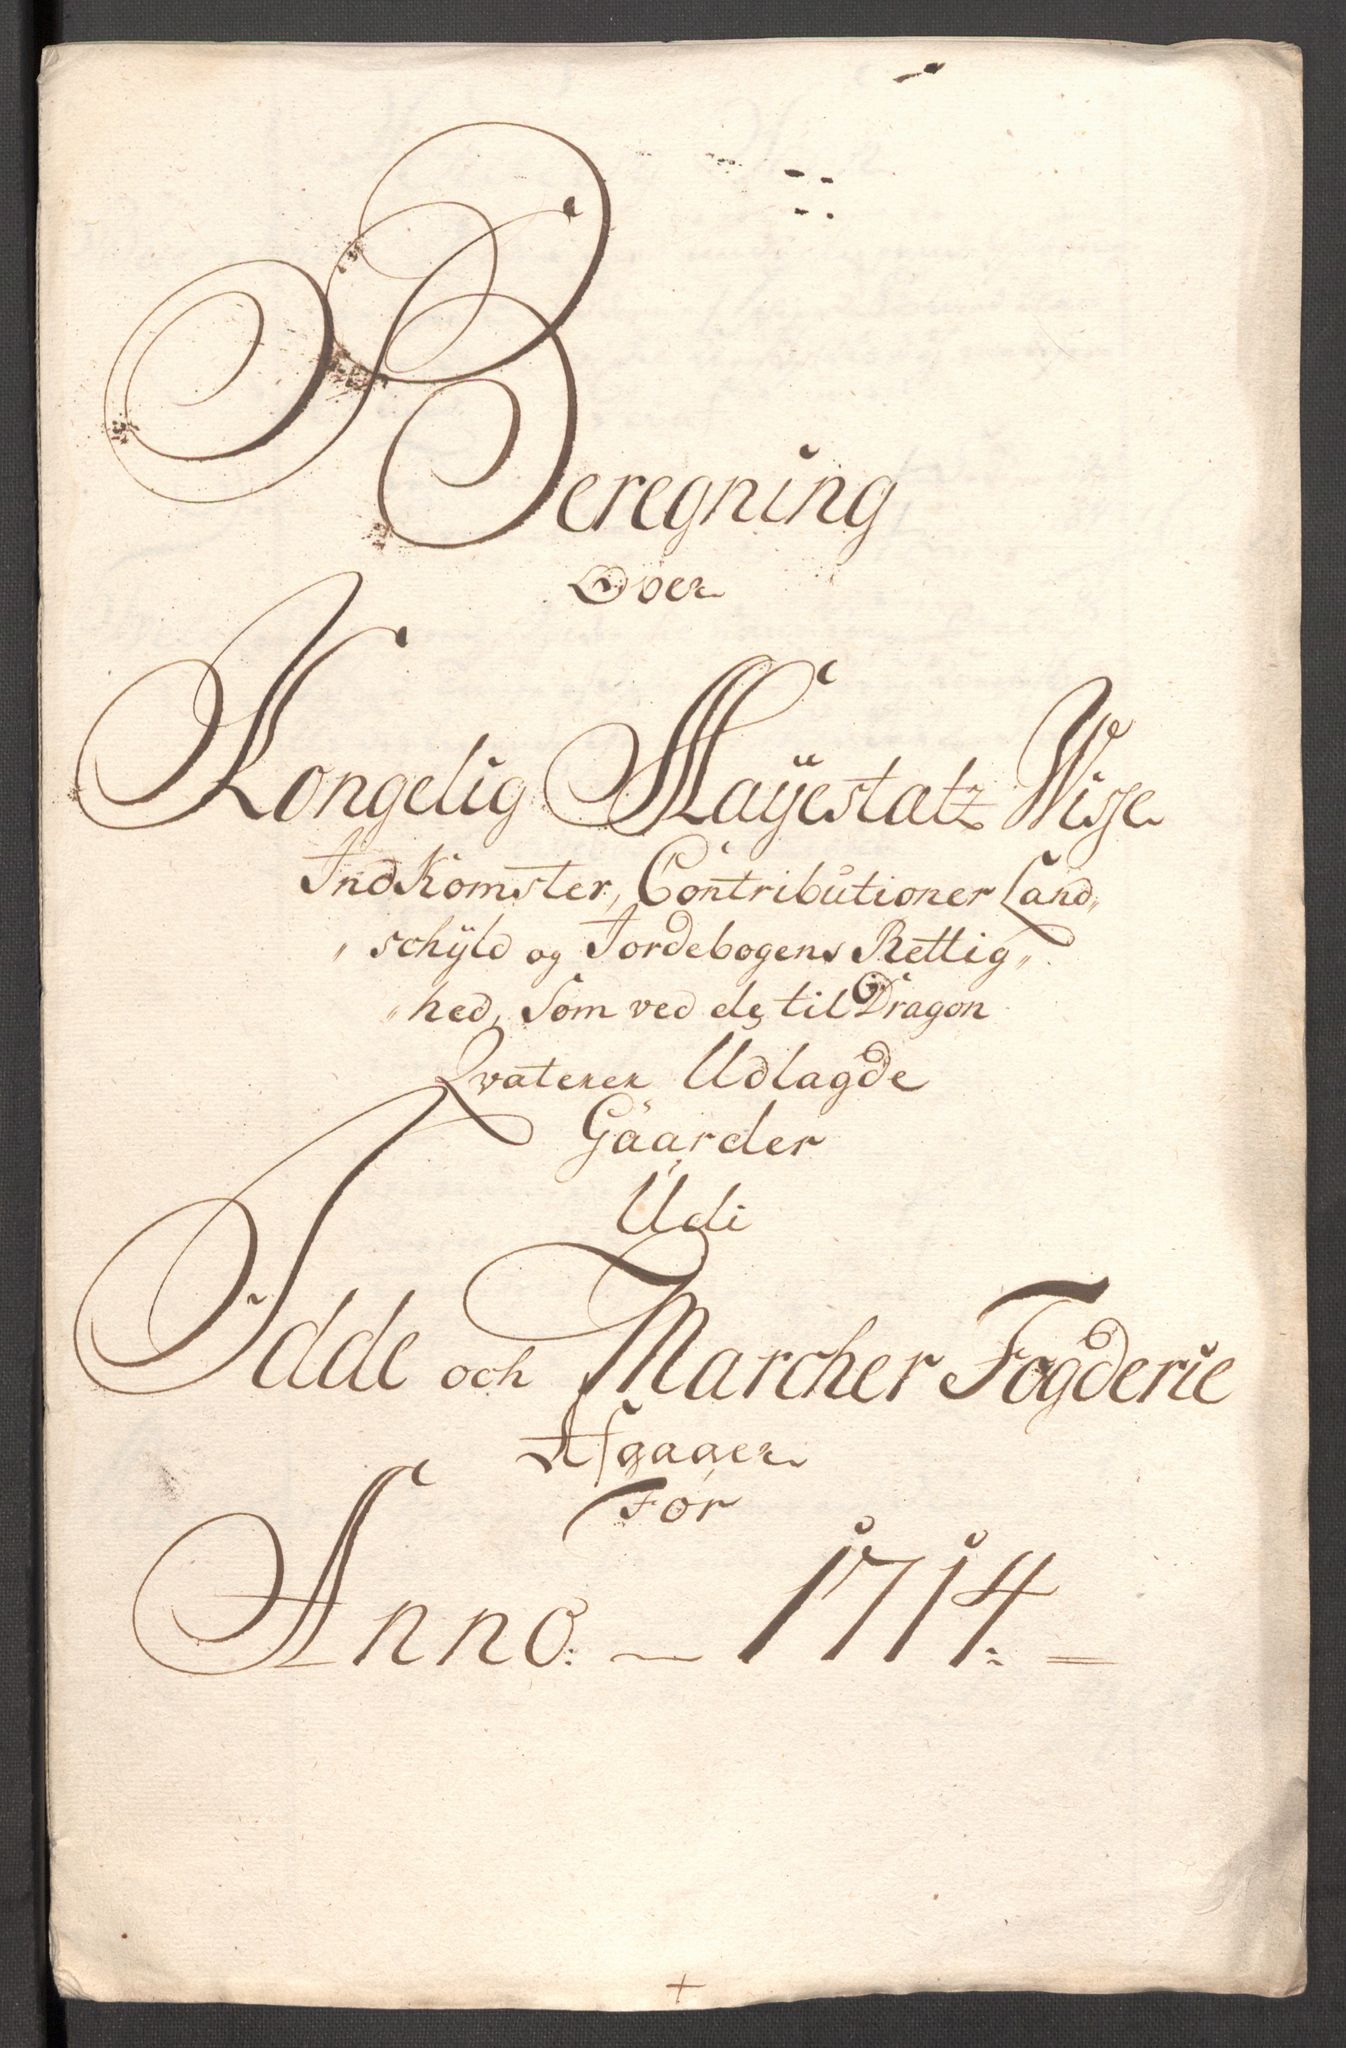 Beregning
Over
Kongelig Mayestatz Wisse
Indkomster, Contributioner Land„
„schyld og Jordebogens Rettig„
„hed, Som ved de til Dragon
Qvaterer Udlagde
Gaarder
Udi
Idde och Marcher Fogderie
Afgaaer
For
Anno. — 1714. =